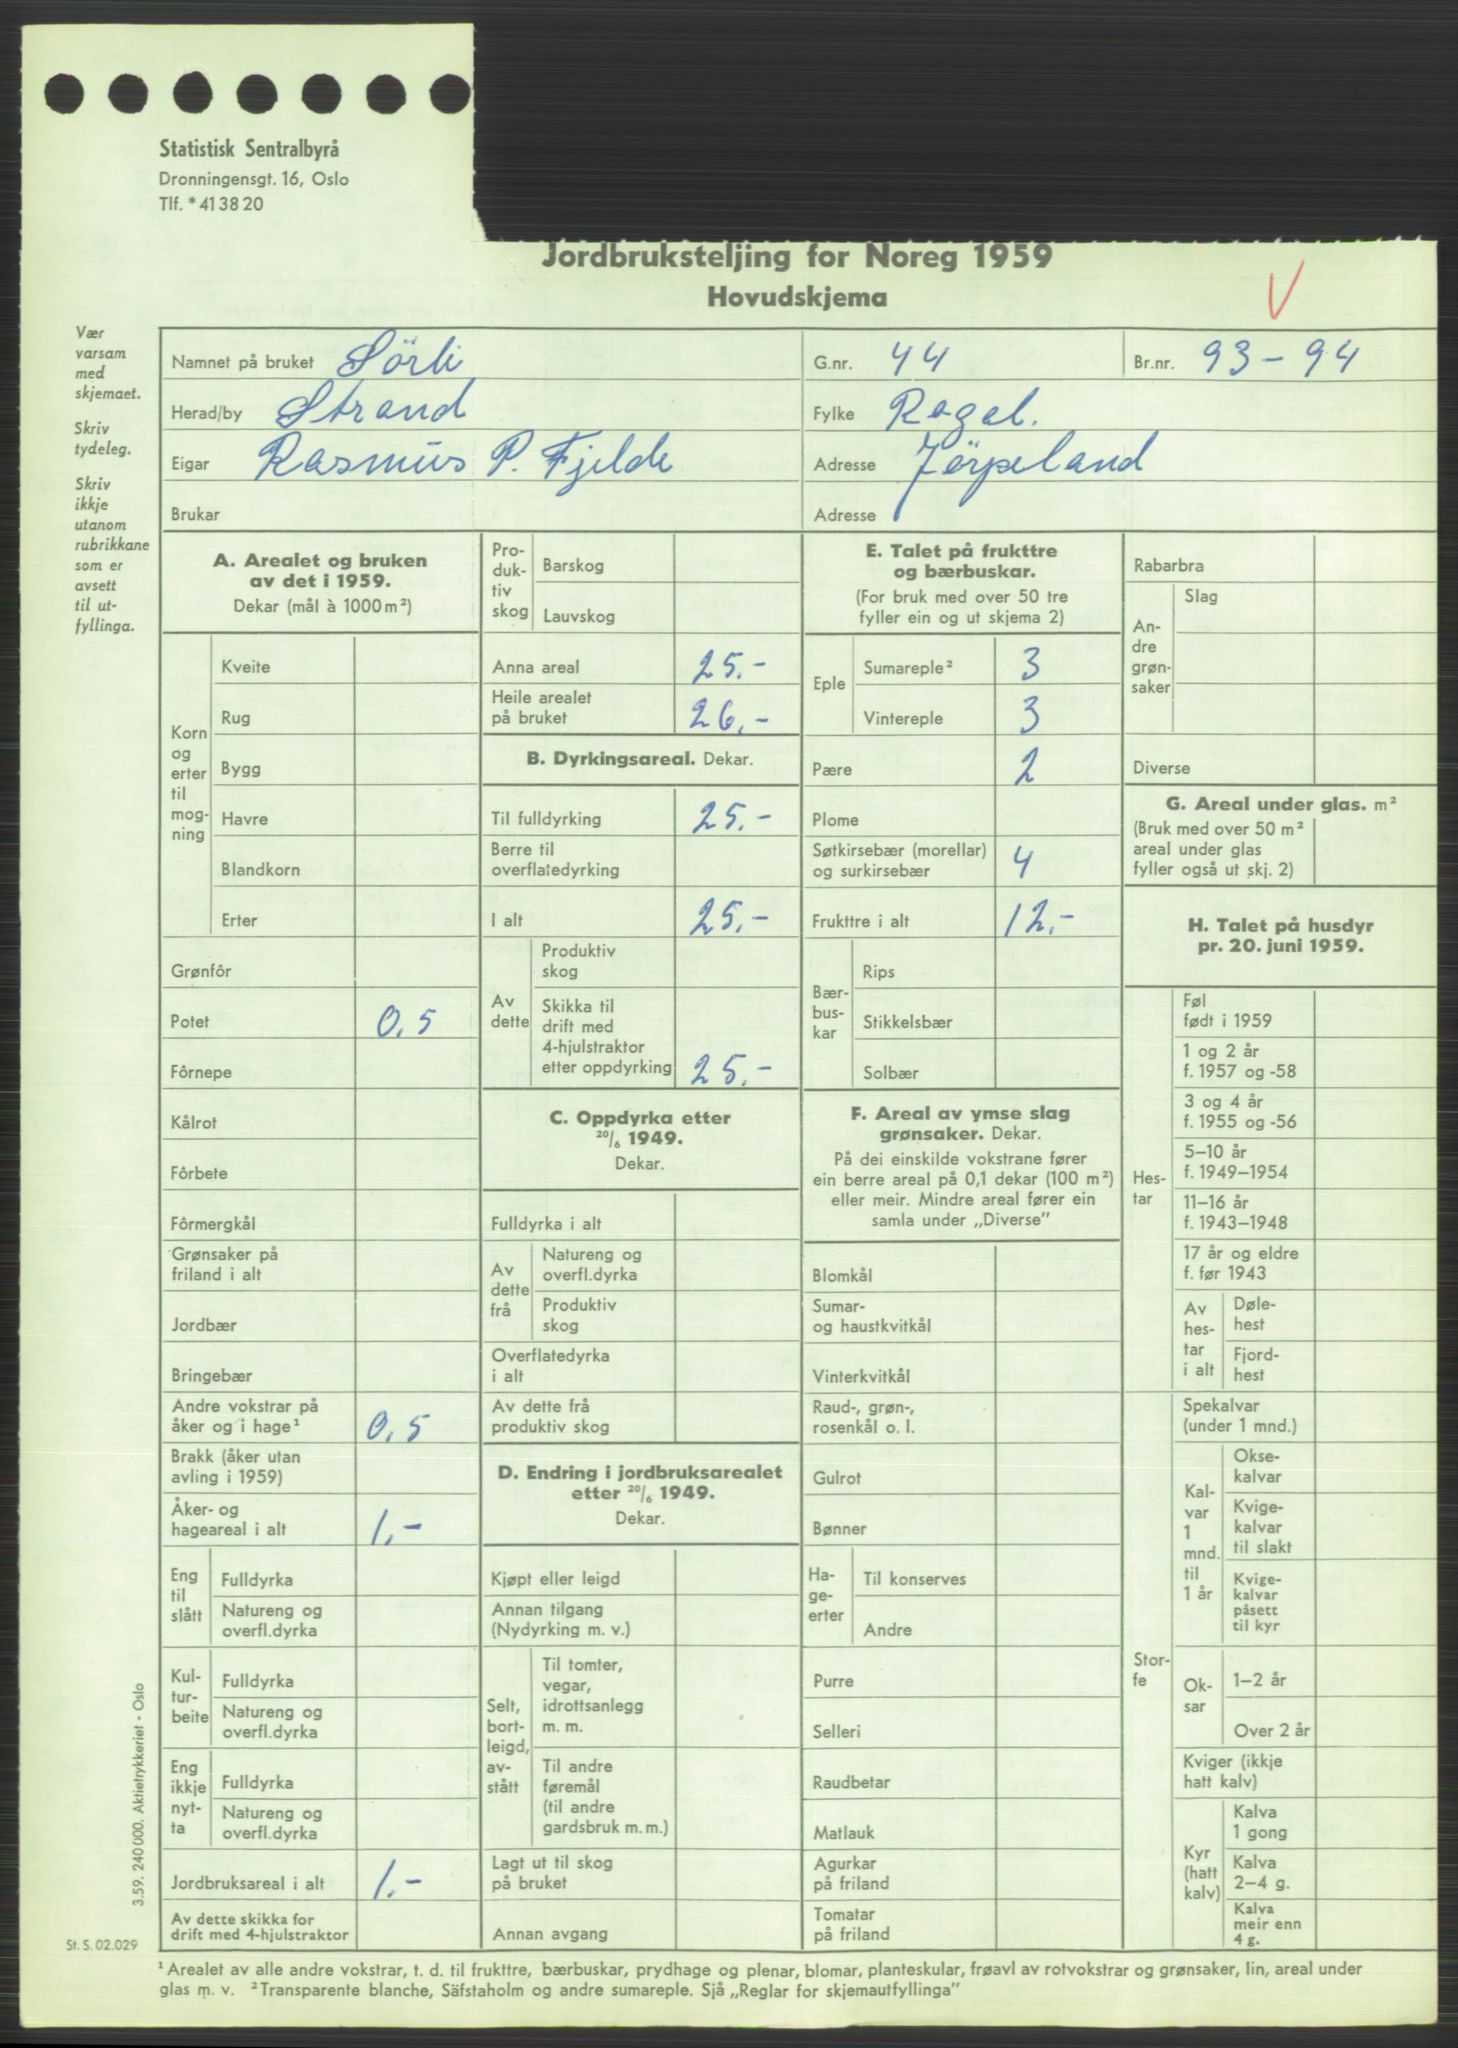 Statistisk Sentralbyrå
Dronningensgt. 16, Oslo
Tlf. * 41 38 20
Jordbruksteljing for Noreg 1959
Hovudskjema
V
Vær
varsam
med
skjemaet.
Skriv
tydeleg.
Skriv
ikkje
utanom
rubrikkane
som er
avsett
til ut-
fyllinga.
Namnet på bruket Sörli G.nr. 44 Br.nr. 93 - 94
Herad/by Strand Fylke Rogal.
Eigar Rasmus P. Fjelde Adresse Jörpeland
Brukar Adresse
A. Arealet og bruken
av det i 1959.
Dekar (mål à 1000 m²)
Korn
og
erter
til
mog-
ning
Kveite
Rug
Bygg
Havre
Blandkorn
Erter
Grønfôr
Potet 0,5
Fôrnepe
Kålrot
Fôrbete
Fôrmergkål
Grønsaker på
friland i alt
Jordbær
Bringebær
Andre vokstrar på
åker og i hage¹ 0,5
Brakk (åker utan
avling i 1959)
Åker- og
hageareal i alt 1,-
Eng
til
slått
Fulldyrka
Natureng og
overfl.dyrka
Kul-
tur-
beite
Fulldyrka
Natureng og
overfl.dyrka
Eng
ikkje
nyt-
ta
Fulldyrka
Natureng og
overfl.dyrka
Jordbruksareal i alt 1.-
Av dette skikka for
drift med 4-hjulstraktor
Pro-
duk-
tiv
skog
Barskog
Lauvskog
Anna areal 25.-
Heile arealet
på bruket 26,-
B. Dyrkingsareal. Dekar.
Til fulldyrking 25.-
Berre til
overflatedyrking
I alt 25.-
Av
dette
Produktiv
skog
Skikka til
drift med
4-hjulstraktor
etter oppdyrking 25.-
C. Oppdyrka etter
20/6 1949.
Dekar.
Fulldyrka i alt
Av
dette
frå
Natureng og
overfl.dyrka
Produktiv
skog
Overflatedyrka
i alt
Av dette frå
produktiv skog
D. Endring i jordbruksarealet
etter 20/6 1949.
Dekar.
Kjøpt eller leigd
Annan tilgang
(Nydyrking m. v.)
Selt,
bort-
leigd,
av-
stått
Til tomter,
vegar,
idrottsanlegg
m. m.
Til andre
føremål
(til andre
gardsbruk m. m.)
Lagt ut til skog
på bruket
Annan avgang
E. Talet på frukttre
og bærbuskar.
(For bruk med over 50 tre
fyller ein og ut skjema 2)
Eple
Sumareple² 3
Vintereple 3
Pære 2
Plome
Søtkirsebær (morellar)
og surkirsebær 4
Frukttre i alt 12.-
Bær-
bus-
kar
Rips
Stikkelsbær
Solbær
F. Areal av ymse slag
grønsaker. Dekar.
På dei einskilde vokstrane fører
ein berre areal på 0,1 dekar (100 m²)
eller meir. Mindre areal fører ein
samla under „Diverse”
Blomkål
Sumar-
og haustkvitkål
Vinterkvitkål
Raud-, grøn-,
rosenkål o. l.
Gulrot
Bønner
Ha-
ge-
erter
Til konserves
Andre
Purre
Selleri
Raudbetar
Matlauk
Agurkar
på friland
Tomatar
på friland
Rabarbra
An-
dre
grøn-
saker
Slag
Diverse
G. Areal under glas. m²
(Bruk med over 50 m²
areal under glas
fyller også ut skj. 2)
H. Talet på husdyr
pr. 20. juni 1959.
Hes-
tar
Føl
født i 1959
1 og 2 år
f. 1957 og -58
3 og 4 år
f. 1955 og -56
5–10 år
f. 1949–1954
11–16 år
f. 1943–1948
17 år og eldre
f. før 1943
Av
hes-
tar
i alt
Døle-
hest
Fjord-
hest
Stor-
fe
Spekalvar
(under 1 mnd.)
Kal-
var
1
mnd.
til
1 år
Okse-
kalvar
Kvige-
kalvar
til slakt
Kvige-
kalvar
påsett
til kyr
Ok-
sar
1–2 år
Over 2 år
Kviger (ikkje
hatt kalv)
Kyr
(hatt
kalv)
Kalva
1 gong
Kalva
2–4 g.
Kalva
meir enn
4 g.
3.59. 240 000. Aktietrykkeriet - Oslo
St. S. 02.029
¹ Arealet av alle andre vokstrar, t. d. til frukttre, bærbuskar, prydhage og plenar, blomar, planteskular, frøavl av rotvokstrar og grønsaker, lin, areal under
glas m. v. ² Transparente blanche, Säfstaholm og andre sumareple. Sjå „Reglar for skjemautfyllinga”